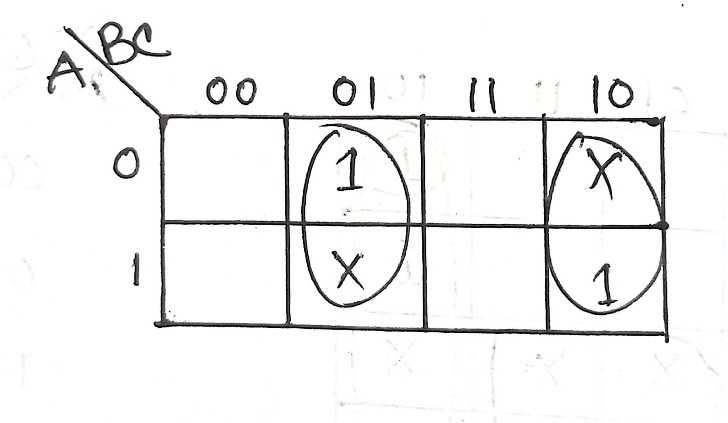 A, BC
00 01 11 10
0 1 X
1 X 1